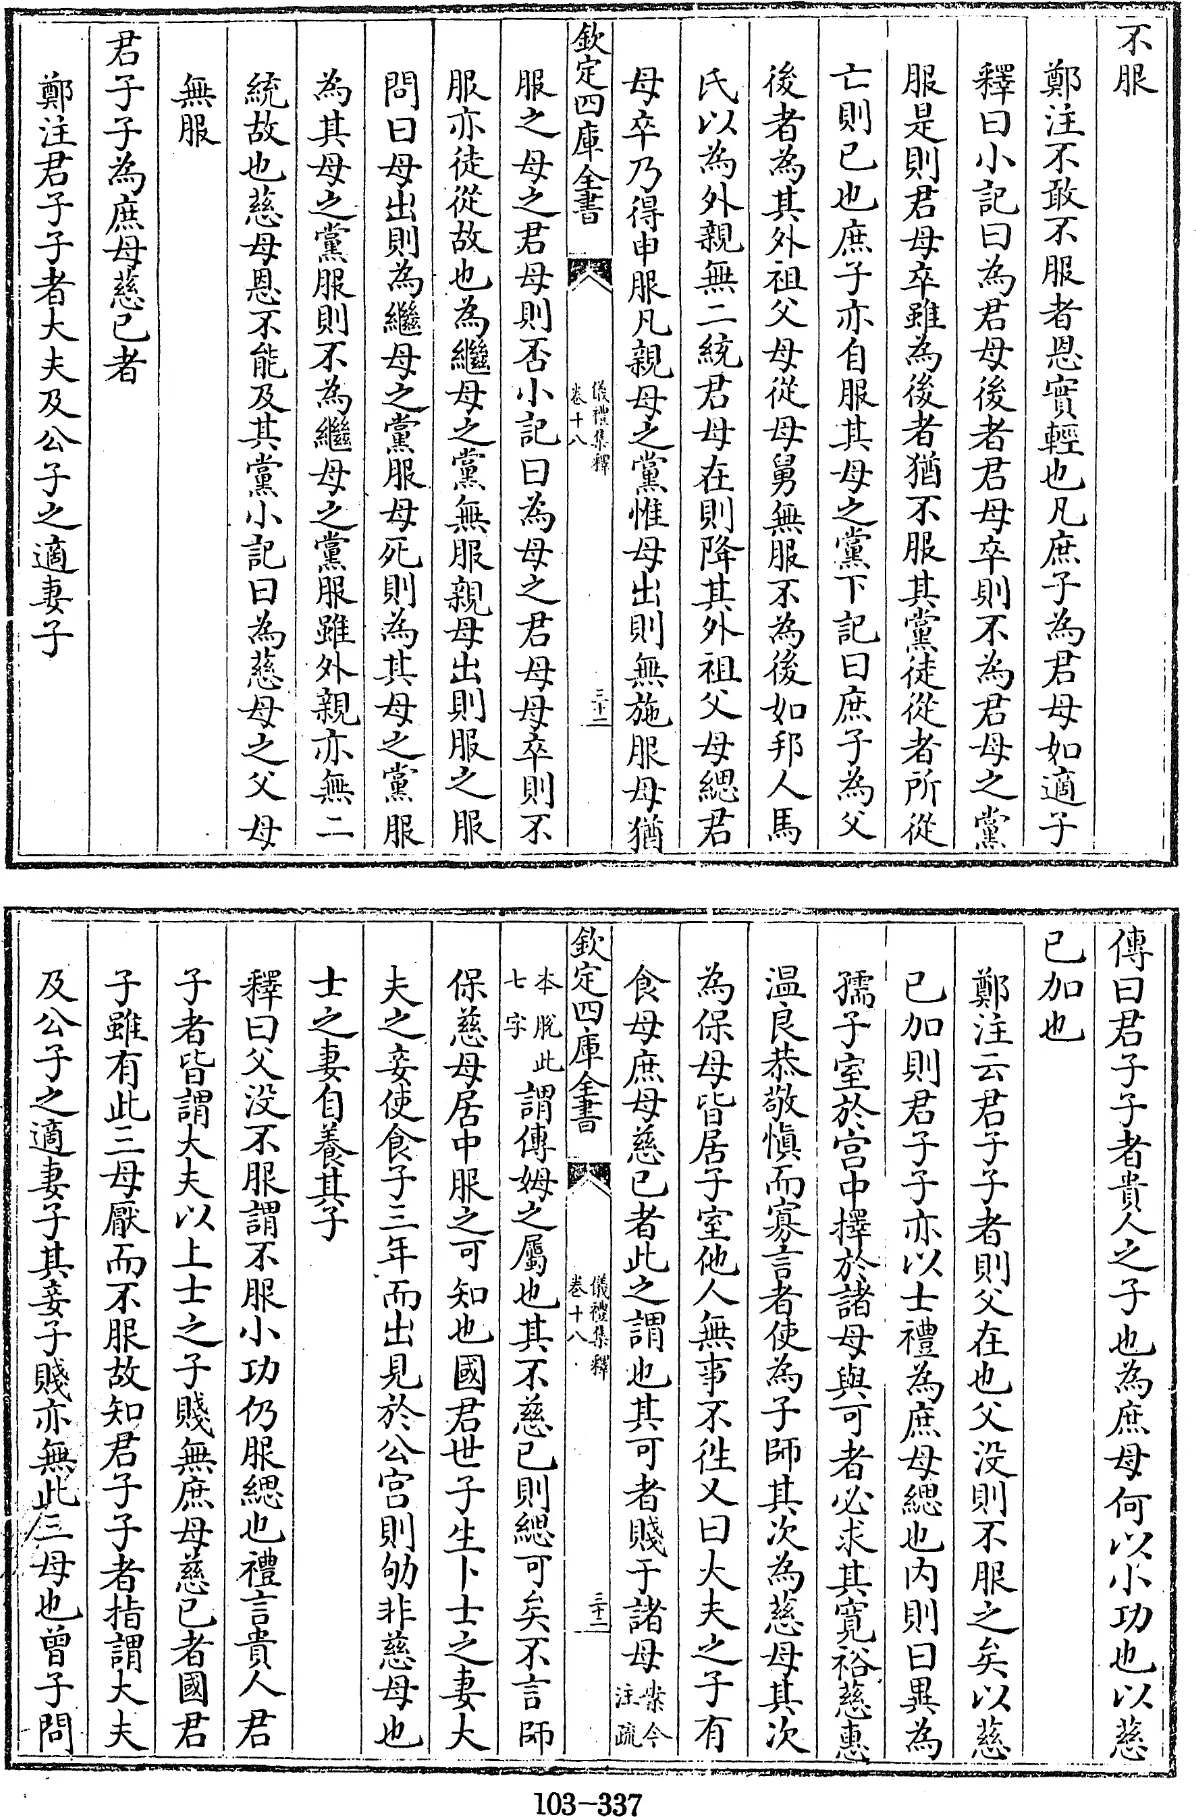 不服
鄭注不敢不服者恩實輕也凡庶子為君母如適子
釋曰小記曰為君母後者君母卒則不為君母之黨
服是則君母卒雖為後者猶不服其黨徒從者所從
亡則已也庶子亦自服其母之黨下記曰庶子為父
後者為其外祖父母從母舅無服不為後如邦人馬
氏以為外親無二統君母在則降其外祖父母緦君
母卒乃得申服凡親母之黨惟母出則無施服母猶
欽定四庫全書
儀禮集釋
卷十八
三十一
服之母之君母則否小記曰為母之君母母卒則不
服亦徒從故也為繼母之黨無服親母出則服之服
問曰母出則為繼母之黨服母死則為其母之黨服
為其母之黨服則不為繼母之黨服雖外親亦無二
統故也慈母恩不能及其黨小記曰為慈母之父母
無服
君子子為庶母慈己者
鄭注君子子者大夫及公子之適妻子
傳曰君子子者貴人之子也為庶母何以小功也以慈
己加也
鄭注云君子子者則父在也父没則不服之矣以慈
己加則君子子亦以士禮為庶母緦也内則曰異為
孺子室於宫中擇於諸母與可者必求其寛裕慈惠
温良恭敬慎而寡言者使為子師其次為慈母其次
為保母皆居子室他人無事不徃又曰大夫之子有
食母庶母慈己者此之謂也其可者賤于諸母案今
注疏
欽定四庫全書
儀禮集釋
卷十八
三十二
本脱此
七字
謂傅姆之屬也其不慈己則緦可矣不言師
保慈母居中服之可知也國君世子生卜士之妻大
夫之妾使食子三年而出見於公宫則劬非慈母也
士之妻自養其子
釋曰父没不服謂不服小功仍服緦也禮言貴人君
子者皆謂大夫以上士之子賤無庶母慈己者國君
子雖有此三母厭而不服故知君子子者指謂大夫
及公子之適妻子其妾子賤亦無此三母也曾子問
103-337